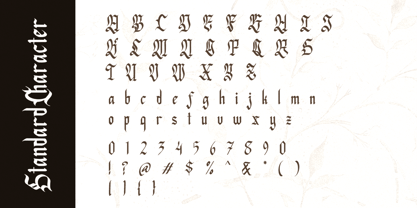 Standard Character
A B C D E F G H I J
K L M N O P Q R S
T U V W X Y Z
a b c d e f g h i j k l m n
o p q r s t u v w x y z
0 1 2 3 4 5 6 7 8 9 0
! ? @ # $ % ^ & * ( )
[ ] { }